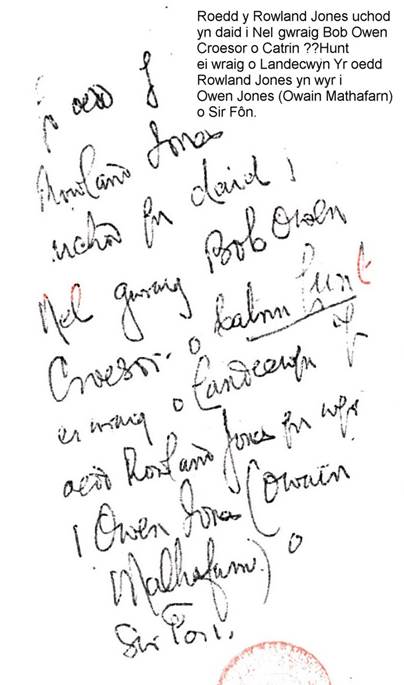 Roedd y Rowland Jones uchod
yn daid i Nel gwraig Bob Owen
Croesor o Catrin ??Hunt
ei wraig o Landecwyn Yr oedd
Rowland Jones yn wyr i
Owen Jones (Owain Mathafarn)
o Sir Fôn.
Yr oedd y
Rowland Jones
uchod yn daid i
Nel gwraig Bob Owen
Croesor. o Catrin
ei wraig o Landecwyn Yr
oedd Rowland Jones yn wyr
i Owen Jones (Owain
Mathafarn) o
Sir Fôn.